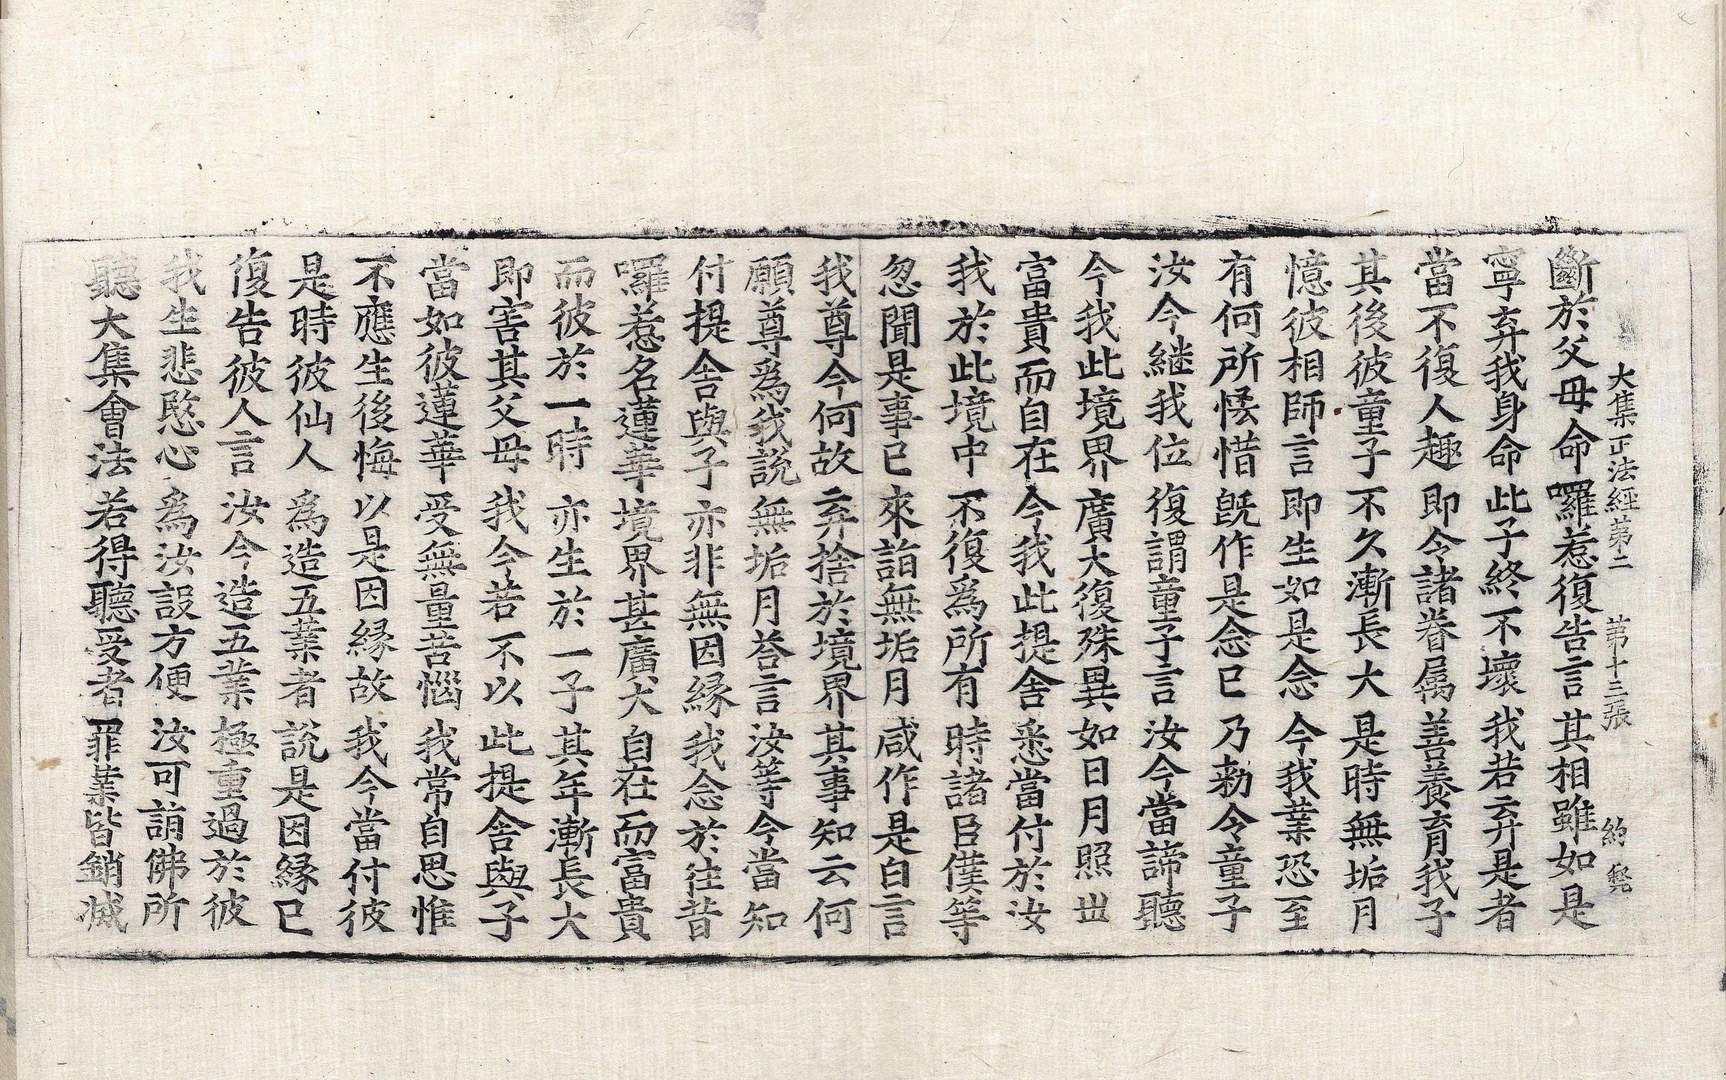 大集正法經第二　第十三張　約
斷於父母命囉惹復告言其相雖如是
寧弃我身命此子終不壞我若弃是者
當不復人趣即令諸眷屬善養育我子
其後彼童子不久漸長大是時無垢月
憶彼相師言即生如是念今我業恐至
有何所悋惜旣作是念已乃勑令童子
汝今継我位復謂童子言汝今當諦聽
今我此境界廣大復殊異如日月照丗
富貴而自在今我此提舍悉當付於汝
我於此境中不復爲所有時諸臣僕等
忽聞是事已來詣無垢月咸作是白言
我尊今何故弃捨於境界其事知云何
願尊爲我說無垢月荅言汝等今當知
付提舍與子亦非無因緣我念於往昔
囉惹名蓮華境界甚廣大自在而富貴
而彼於一時亦生於一子其年漸長大
即害其父母我今若不以此提舍與子
當如彼蓮華受無量苦惱我常自思惟
不應生後悔以是因緣故我今當付彼
是時彼仙人爲造五業者說是因緣已
復告彼人言汝今造五業極重過於彼
我生悲愍心爲汝設方便汝可詣佛所
聽大集會法若得聽受者罪業皆銷滅